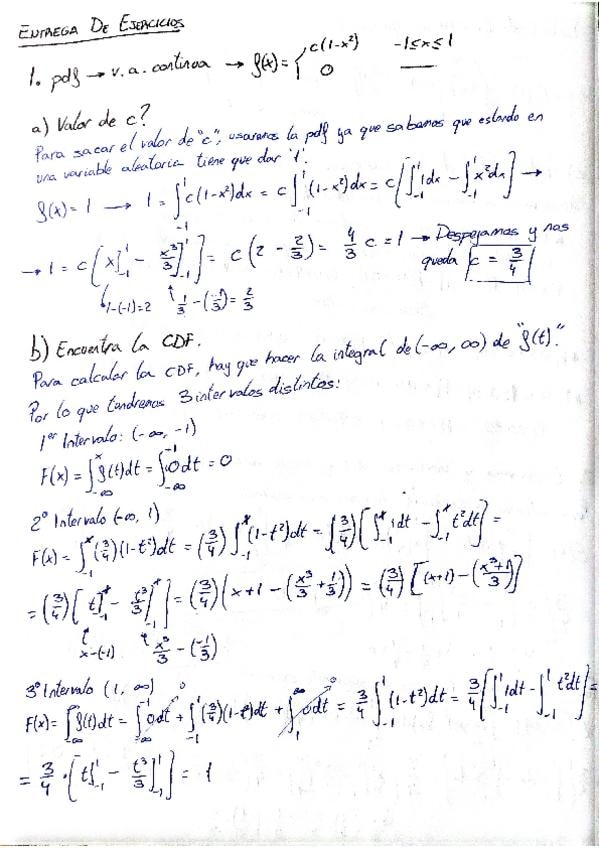 ENTREGA DE EJERCICIOS
1. pdf → v.a. continua → f(x) = { c(1-x²) -1≤x≤1
0 —
a) Valor de c?
Para sacar el valor de "c", usaremos la pdf ya que sabemos que estando en
una variable aleatoria tiene que dar '1'.
f(x) = 1 → 1 = ∫₋₁¹ c(1-x²)dx = c ∫₋₁¹ (1-x²)dx = c [∫₋₁¹ 1dx - ∫₋₁¹ x²dx] →
→ 1 = c [x]₋₁¹ - x³/3]₋₁¹] = c (2 - 2/3) = 4/3 c = 1 → Despejamos y nos
queda c = 3/4
1-(-1)=2 1/3 - (-1/3) = 2/3
b) Encuentra la CDF.
Para calcular la CDF, hay que hacer la integral de (-∞, ∞) de "f(t)".
Por lo que tendremos 3 intervalos distintos:
1er Intervalo: (-∞, -1)
F(x) = ∫₋∞ˣ f(t)dt = ∫₋∞⁻¹ 0dt = 0
2º Intervalo (-∞, 1)
F(x) = ∫₋₁ˣ (3/4)(1-t²)dt = (3/4) ∫₋₁ˣ (1-t²)dt = (3/4) [∫₋₁ˣ 1dt - ∫₋₁ˣ t²dt] =
= (3/4) [t]₋₁ˣ - t³/3]₋₁ˣ] = (3/4) (x+1 - (x³/3 + 1/3)) = (3/4) [(x+1) - (x³+1/3)]
x-(-1) x³/3 - (-1/3)
3º Intervalo (1, ∞)
F(x) = ∫₋∞^∞ f(t)dt = ∫₋∞⁻¹ 0dt + ∫₋₁¹ (3/4)(1-t²)dt + ∫₁^∞ 0dt = 3/4 ∫₋₁¹ (1-t²)dt = 3/4 [∫₋₁¹ 1dt - ∫₋₁¹ t²dt] =
= 3/4 · [t]₋₁¹ - t³/3]₋₁¹] = 1